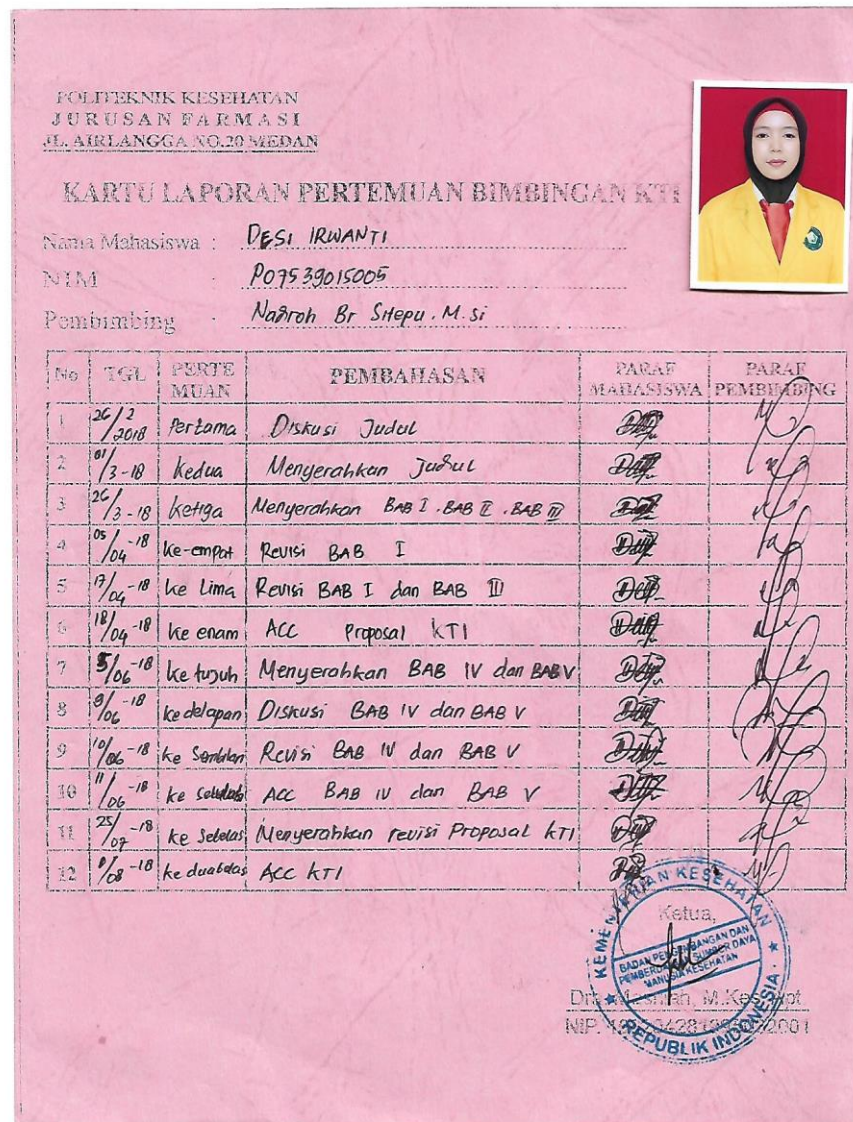 POLITEKNIK KESEHATAN
JURUSAN FARMASI
JL. AIRLANGGA NO.20 MEDAN
KARTU LAPORAN PERTEMUAN BIMBINGAN KTI
Nama Mahasiswa : DESI IRWANTI
NIM : P07539015005
Pembimbing : Nadroh Br Sitepu. M.si
No TGL PERTE MUAN PEMBAHASAN PARAF MAHASISWA PARAF PEMBIMBING
1 26/2 2018 Pertama Diskusi Judul
2 01/3-18 Kedua Menyerahkan Judul
3 26/3-18 Ketiga Menyerahkan BAB I . BAB II . BAB III
4 05/04-18 Ke-empat Revisi BAB I
5 17/04-18 ke Lima Revisi BAB I dan BAB III
6 18/04-18 ke enam ACC Proposal KTI
7 5/06-18 ke tujuh Menyerahkan BAB IV dan BAB V
8 8/06-18 ke delapan Diskusi BAB IV dan BAB V
9 10/06-18 ke Sembilan Revisi BAB IV dan BAB V
10 11/06-18 ke ACC BAB IV dan BAB V
11 25/07-18 ke Sebelas Menyerahkan revisi Proposal KTI
12 1/08-18 ke duabelas ACC KTI
KEMENTERIAN KESEHATAN
Ketua,
BADAN PENGEMBANGAN DAN
PEMBERDAYAAN SUMBER DAYA
MANUSIA KESEHATAN
Dra. Masniah, M.Kes, Apt.
NIP.
REPUBLIK INDONESIA